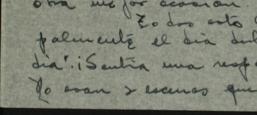 otra mejor ocasion
Todo esto
palmente el dia
dia". ¡Sentia una resp
Yo eran 2 escenas que